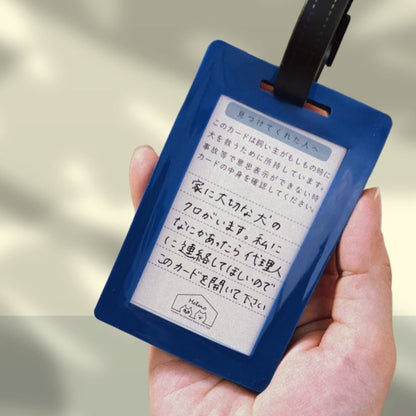 見つけてくれた人へ
このカードは飼い主がもしもの時に
犬を救うために所持しています。
事故等で意思表示ができない時
カードの中身を確認してください。
家に大切な犬の
クロがいます。私に
なにかあったら代理人
に連絡してほしいので
このカードを開いて下さい
Hotmo